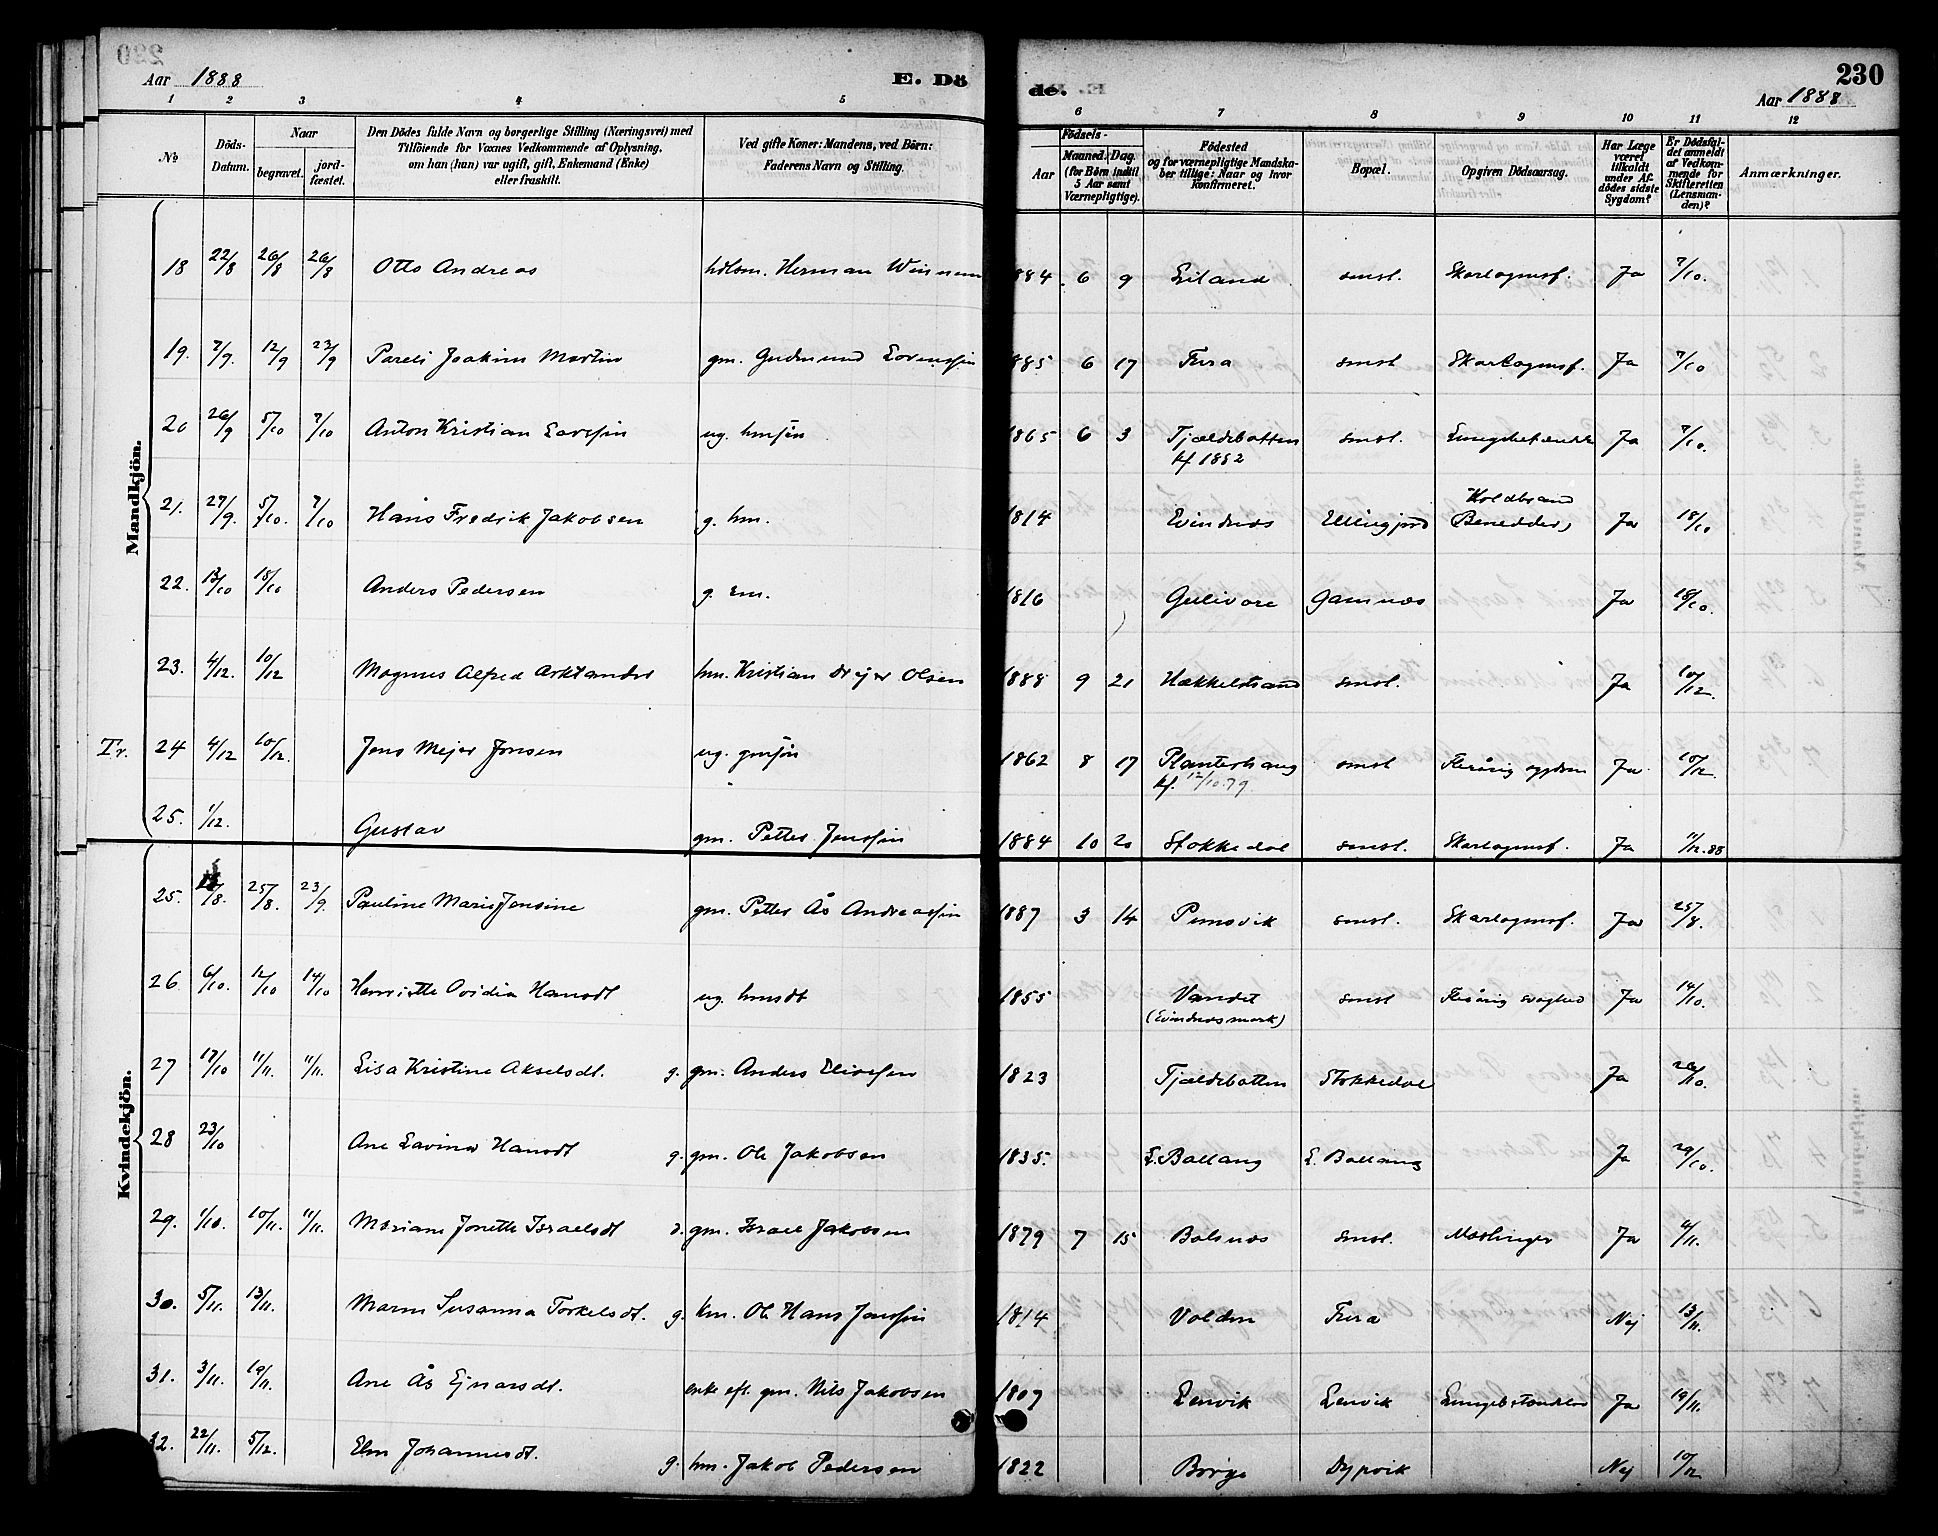 230
Aar 1888
E. Dö
de.
230
Aar 1888
1 2 3 4 5 6 7 8 9 10 11 12
No
Döds-Datum.
Naar
begravet.
jord-fæstet.
Den Dödes fulde Navn og borgerlige Stilling (Næringsvei) med
Tilföiende for Voxnes Vedkommende af Oplysning,
om han (hun) var ugift, gift, Enkemand (Enke)
eller fraskilt.
Ved gifte Koner: Mandens, ved Börn:
Faderens Navn og Stilling.
Födsels-
Aar
Maaned. Dag.
(for Börn indtil
5 Aar samt
Værnepligtige).
Födested
og for værnepligtige Mandska-
ber tillige: Naar og hvor
konfirmeret.
Bopæl.
Opgiven Dödsaarsag.
Har Læge
været
tilkaldt
under Af-
dödes sidste
Sygdom?
Er Dödsfal-
det anmeldt
af Vedkom-
mende for
Skifteretten
(Lensman-
den)?
Anmærkninger.
Mandkjön.
18 22/8 26/8 26/8 Otto Andreas hdlsm. Herman 1884 6 9 smst. Skarlagensf. Ja 7/10.
19. 7/9. 12/9 23/9 Pareli Joakim Martin gm. Gudmund Lorenssön 1885 6 17 Fura smst Skarlagensf. Ja 7/10
20 26/9 5/10 7/10 Anton Kristian ug. hmsön 1865 6 3 Tjældebotten smst. Ja 7/10.
kf 1882
21. 27/9. 5/10. 7/10 Hans Fredrik Jakobsen g. hm. 1814 Evindnes Koldbrand Ja 18/10
22. 13/10 18/10 Anders Pedersen g. em. 1816 Gelivare Gamnes Ja 18/10.
23. 4/12. 10/12 Magnus Alfred Arktander hm. Kristian Drejer Olsen 1888 9 21 Hækkelstrand smst. Ja 10/12.
Tv. 24 4/12 10/12. Jens Mejer Jensen ug. gmsön 1862 8 17 Planterhaug smst Ja 10/12.
kf. 12/10.79
25. 1/12. Gustav gm. Petter Jenssön 1884 10 20 Stokkedal smst. Skarlagensf. Ja 11/12.88
Kvindekjön.
25. 25/8. 23/9. Pauline Marie Jensine gm. Petter Ås Andreassön 1887 3 14 Punsvik smst. Skarlagensf. Ja 25/8.
26 6/10. 12/10 14/10 Henriette Ovidia Hansdt ug. hmsdt 1855 Vandet smst Ja 14/10.
(Evindnesmark)
27 17/10 11/11. 11/11. Lisa Kristine Akselsdt. g. gm. Anders Eliassen 1823 Tjældebotten Stokkedal Ja 26/10.
28 23/10 Ane Lavina Hansdt g. gm. Ole Jakobsen 1835. L. Ballang L. Ballang Ja 29/10.
29. 1/10. 10/11. 11/11. Mariane Jonette Israelsdt d. gm. Israel Jakobsen 1879 7 15 Balsnes smst. Meslinger Ja 4/11.
30. 5/11. 13/11. Maren Susanna Torkelsdt. g. km. Ole Hans Jenssön 1814 Volden Fura Nej 13/11.
31. 3/11. 19/11. Ane Ås Ejnarsdt. enke eft. gm. Nils Jakobsen 1807 Lenvik Lenvik Ja 19/11.
32. 22/11. 5/12. Elen Johannesdt. g. hm. Jakob Pedersen 1822 Børge Dypvik Nej 10/12